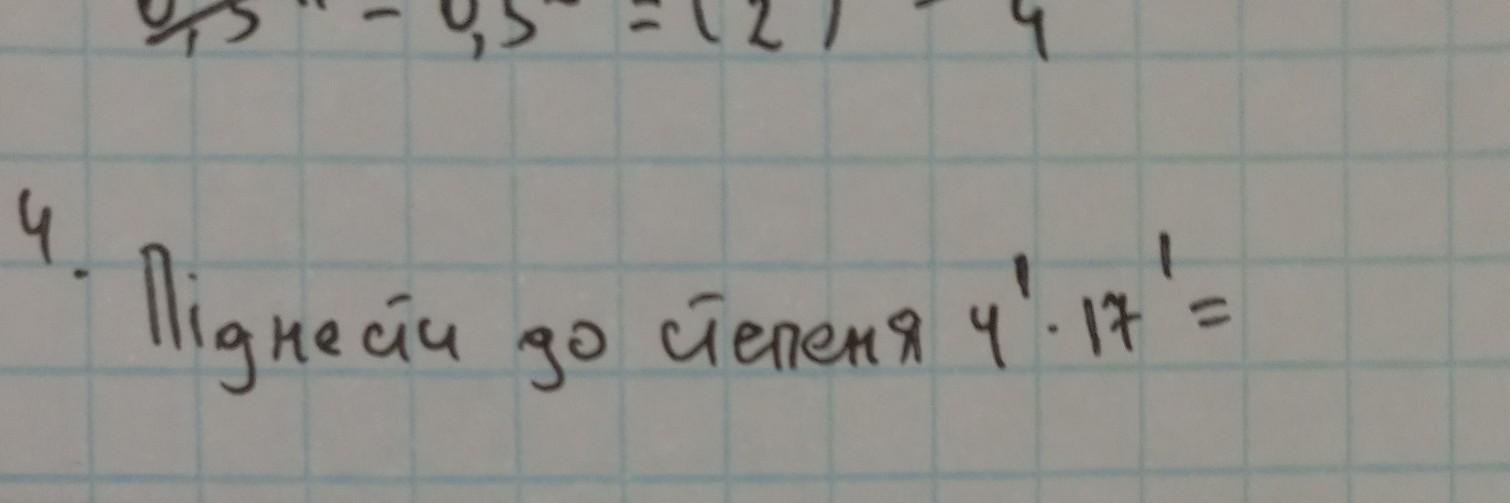 0,5 - 0,5 = (2) - 4
4. Піднести до степеня 4¹ · 17¹ =